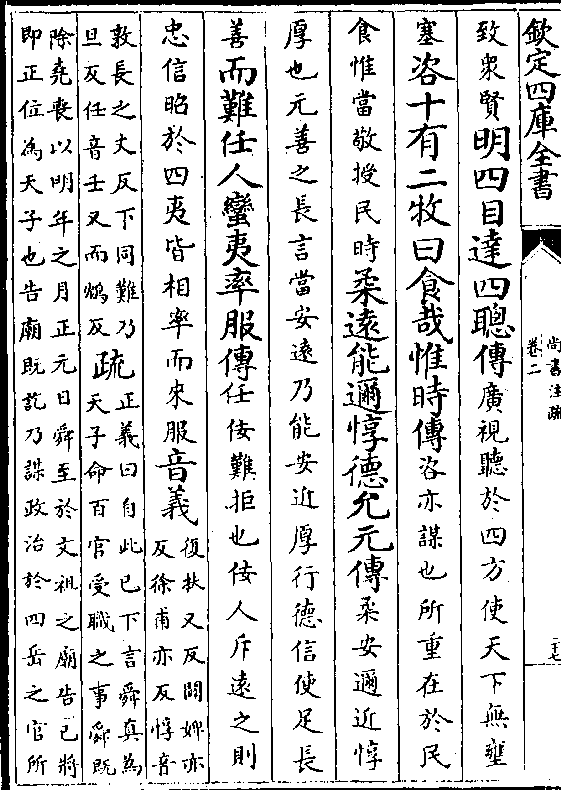 欽定四庫全書
尚書注疏
卷二
二十七
致衆賢明四目達四聰傳廣視聽於四方使天下無壅
塞咨十有二牧曰食哉惟時傳咨亦謀也所重在於民
食惟當敬授民時柔逺能邇惇德允元傳柔安邇近惇
厚也元善之長言當安逺乃能安近厚行德信使足長
善而難任人蠻夷率服傳任佞難拒也佞人斥逺之則
忠信昭於四夷皆相率而來服音義
復扶又反闢婢亦
反徐甫亦反惇音
敦長之丈反下同難乃
旦反任音壬又而鴆反
疏
正義曰自此已下言舜真為
天子命百官受職之事舜既
除堯喪以明年之月正元日舜至於文祖之廟告已將
即正位為天子也告廟既訖乃謀政治於四岳之官所